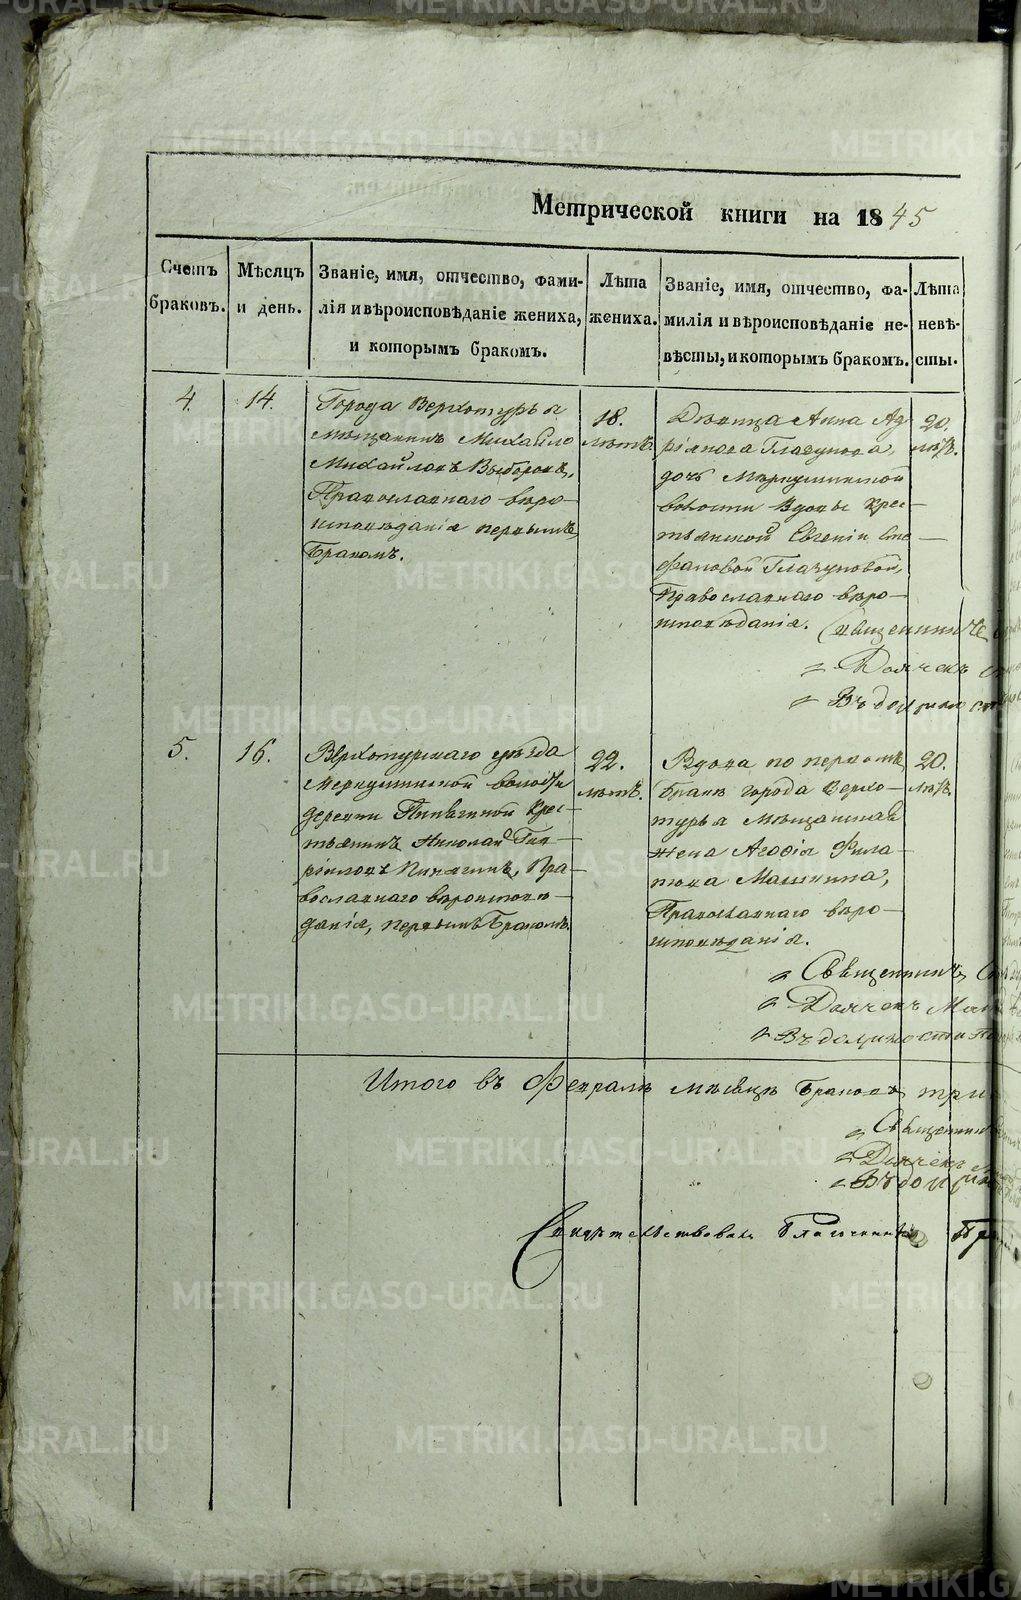 METRIKI.GASO-URAL.RU
Метрической книги на 1845
Счетъ браковъ.
Мѣсяцъ и день.
Званіе, имя, отчество, фами-
лія и вѣроисповѣданіе жениха,
и которымъ бракомъ.
Лѣта жениха.
Званіе, имя, отчество, фа-
милія и вѣроисповѣданіе не-
вѣсты, и которымъ бракомъ.
Лѣта невѣ-
сты.
4.
14.
Города Верхотурья
мѣщанинъ Михайло
Михайловъ Выборовъ,
Православнаго вѣро-
исповѣданія первымъ
Бракомъ.
18.
лѣтъ.
Дѣвица Анна Ад
ріянова Глазунова,
дочь Меркушинской
волости Вдовы Крес-
тьянской Евгеніи Сте
фановой Глазуновой,
Православнаго вѣро-
исповѣданія.
20.
лѣтъ.
Священникъ
Дьячекъ
5.
16.
Верхотурскаго уѣзда
Меркушинской волости
деревни Пинягиной Крес-
тьянинъ Николай Гав-
ріиловъ Пинягинъ, Пра-
вославнаго вѣроисповѣ-
данія, первымъ Бракомъ.
22.
лѣтъ.
Вдова по первомъ
Бракѣ города Верхо-
турья Мѣщанская
жена Агафія Фила-
това Машкина,
Православнаго вѣро-
исповѣданія.
20.
лѣтъ.
Священникъ
Дьячекъ
Итого въ Февралѣ мѣсяцѣ Браковъ три
Священникъ
Дьячекъ
Свидѣтельствовалъ Благочинный